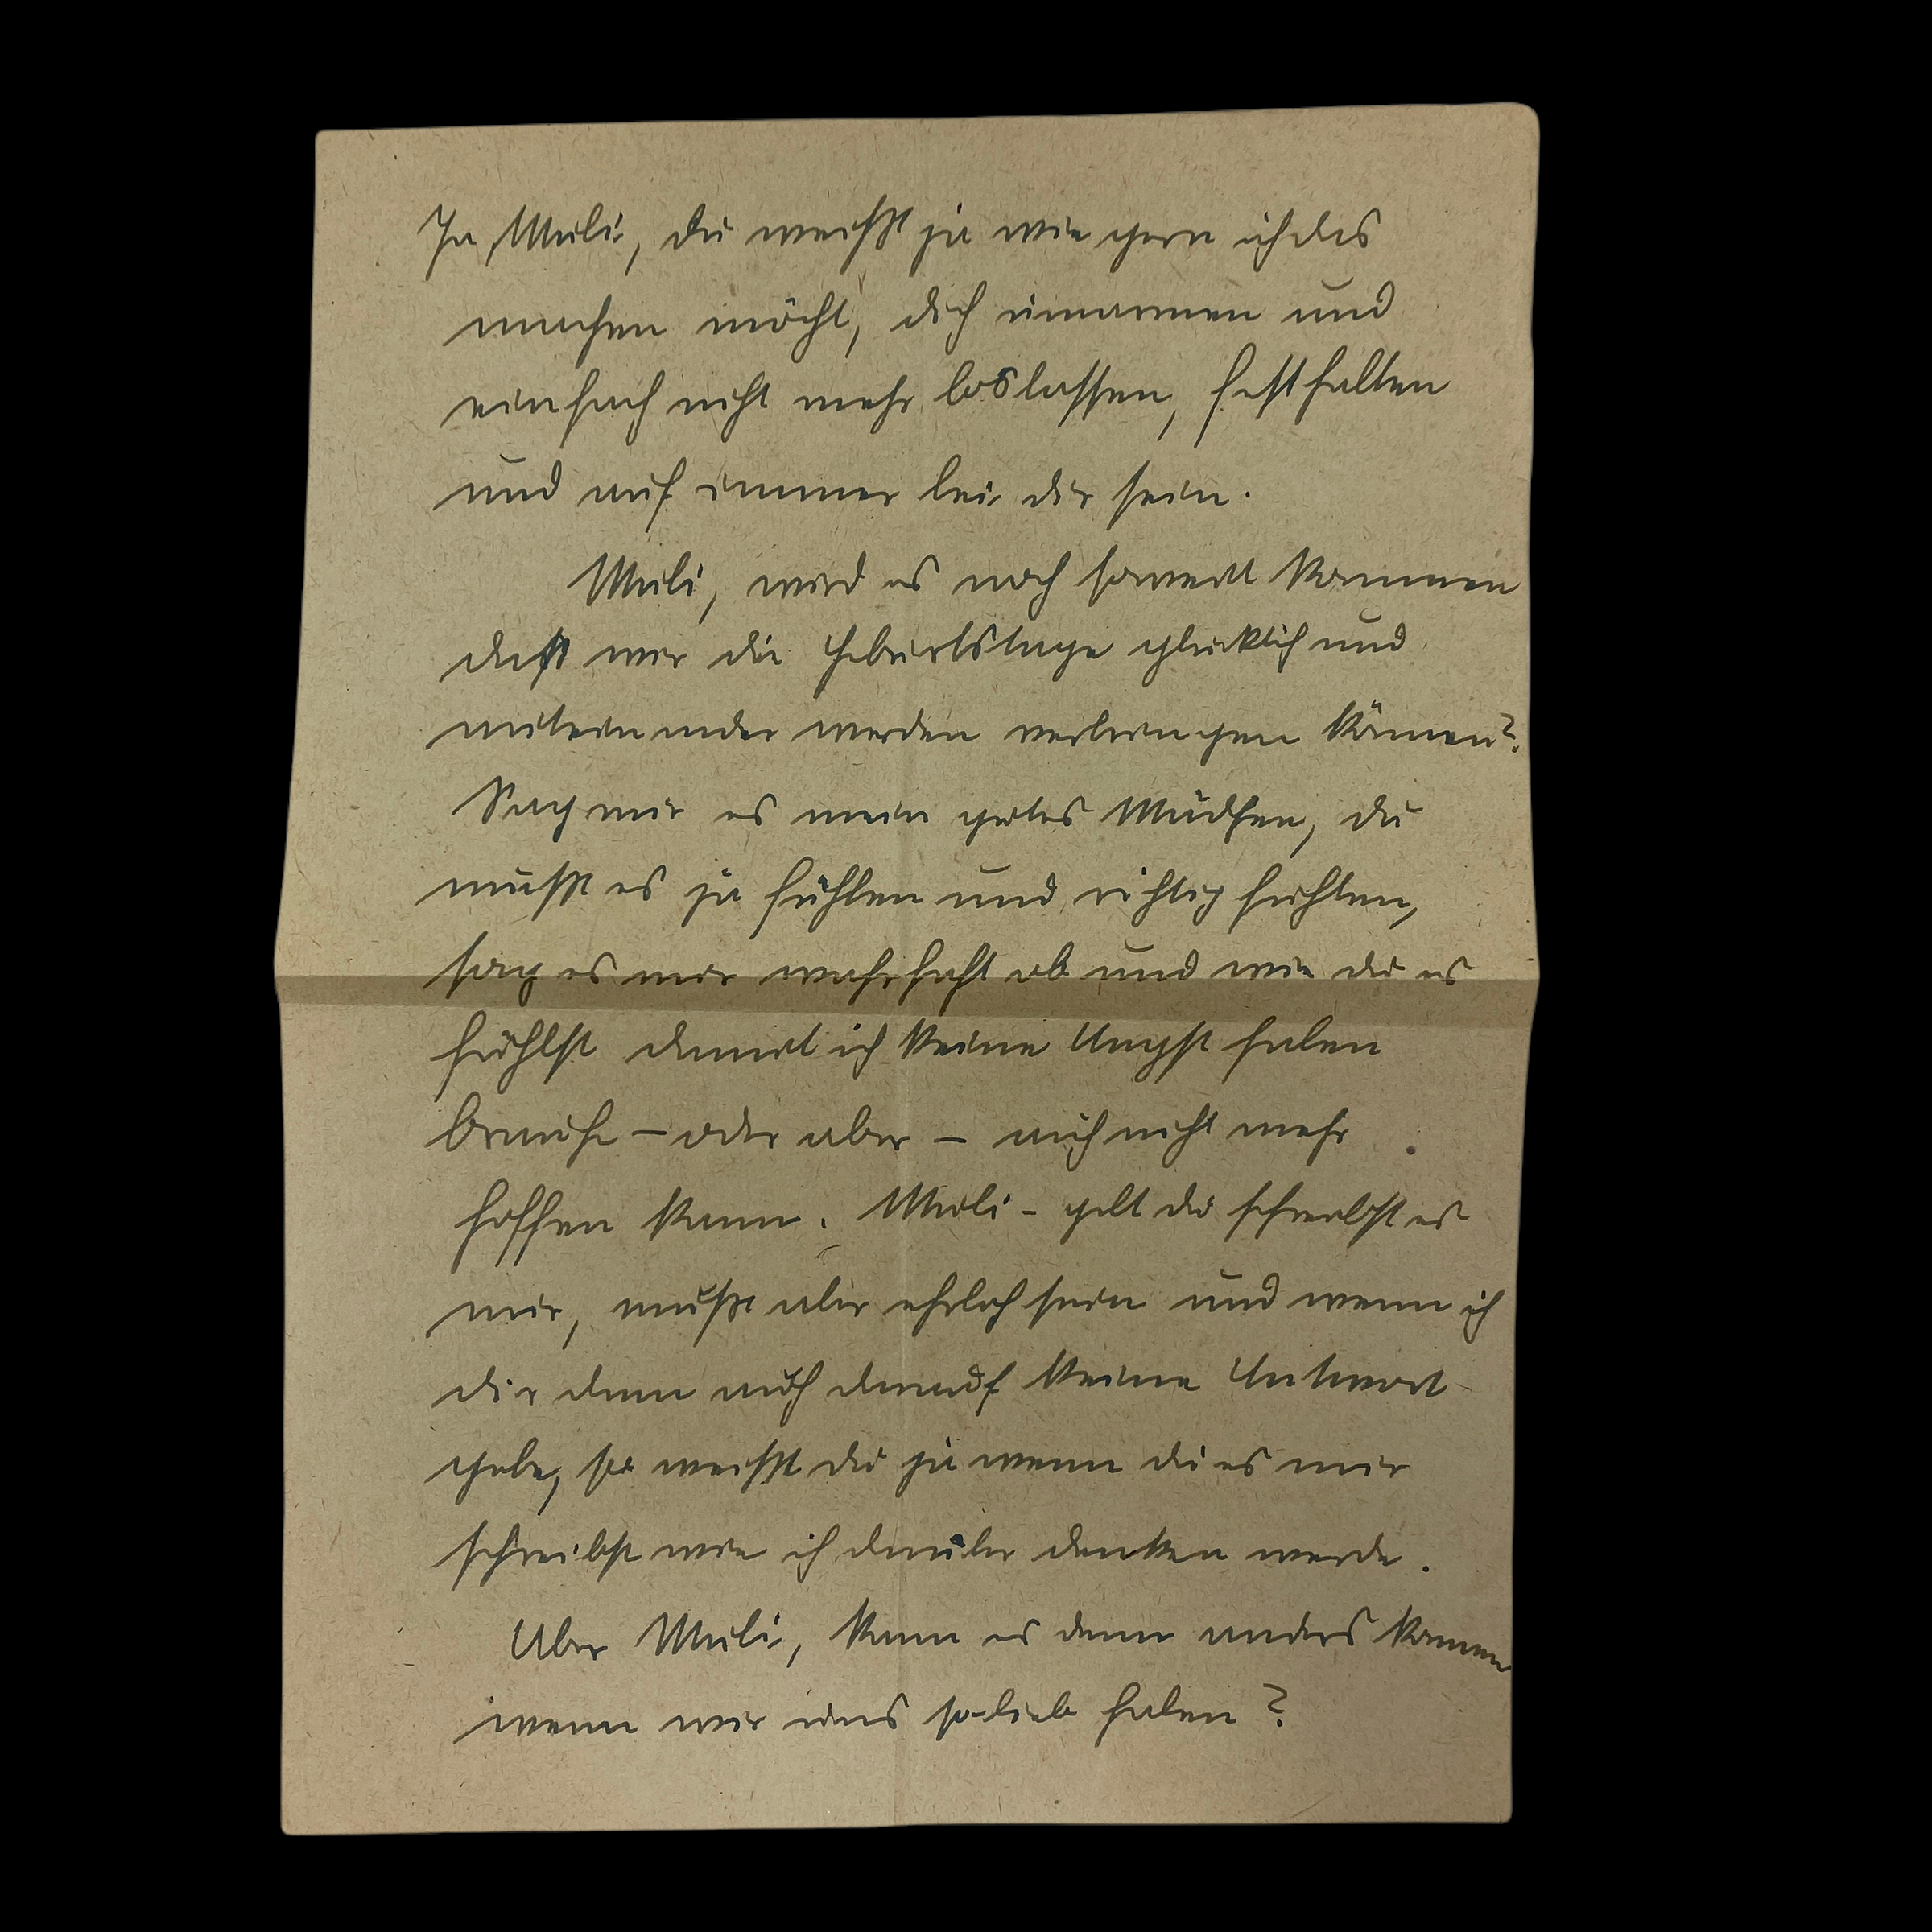 Ja, Muli, du weißt ja wie gern ich das
machen möcht, dich umarmen und
einfach nicht mehr loslassen, festhalten
und auf immer bei dir sein.
Muli, wird es noch soweit kommen
daß wir die Geburtstage glücklich und
miteinander werden verbringen können?
Sag mir es mein gutes Mädchen, du
mußt es ja fühlen und richtig fühlen,
sag es mir wahrhaft ob und wie du es
fühlst damit ich keine Angst haben
brauche – oder aber – auch nicht mehr
hoffen kann. Muli – gelt du schreibst es
mir, mußt aber ehrlich sein und wenn ich
dir dann auch darauf keine Antwort
gebe, so weißt du ja wenn du es mir
schreibst wie ich darüber denken werde.
Aber Muli, kann es denn anders kommen
wenn wir uns so lieb haben?